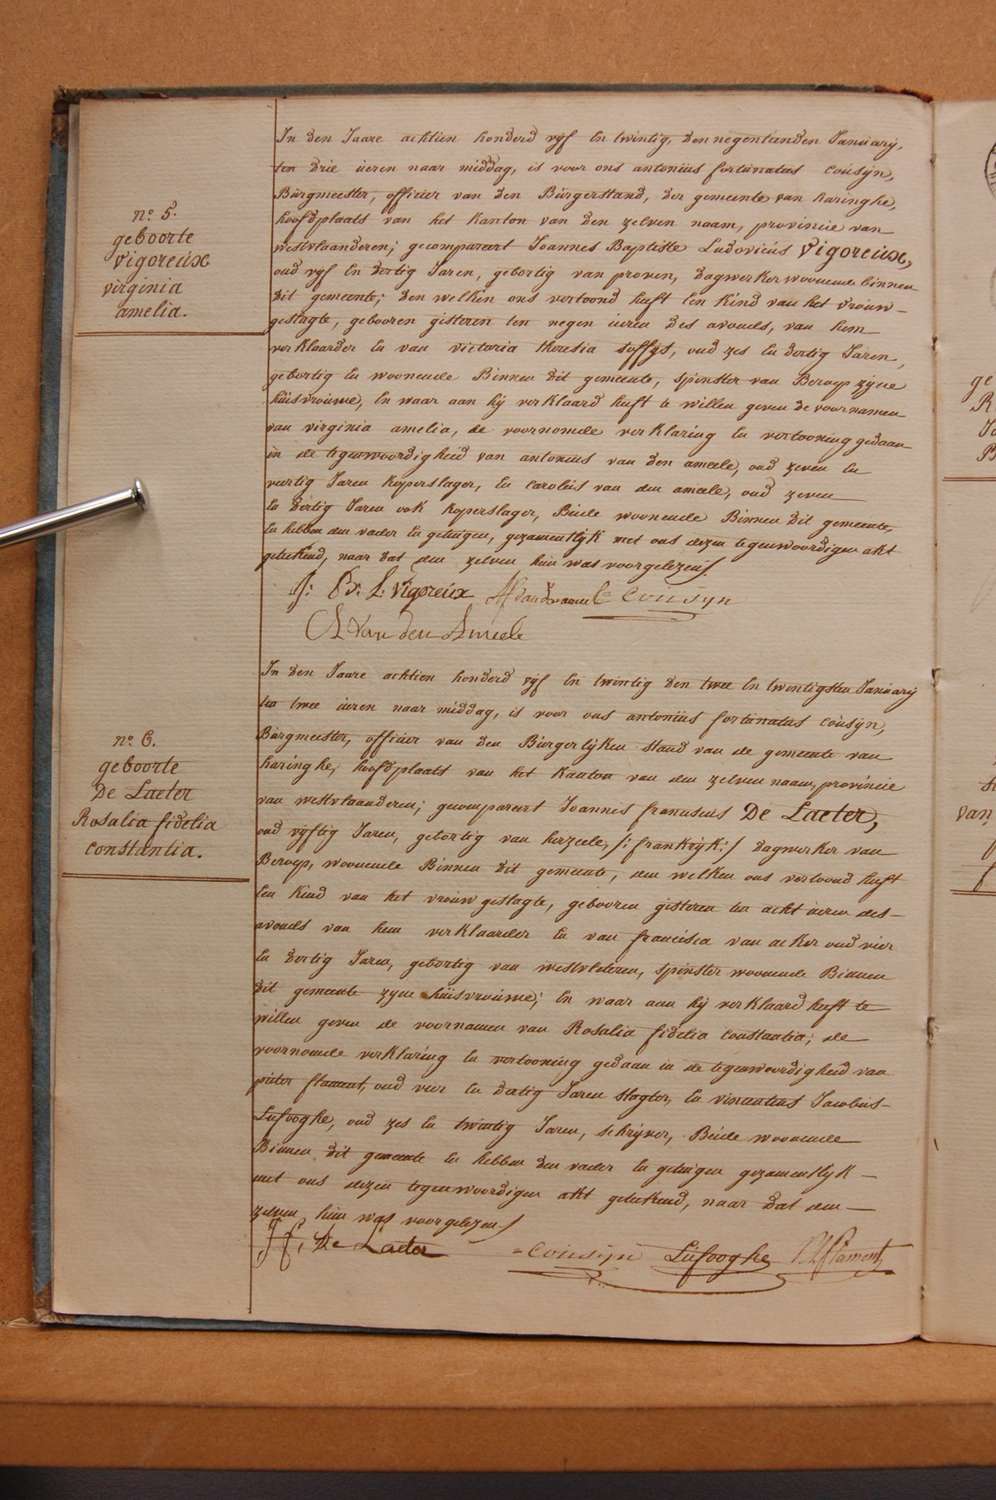 n.o 5.
geboorte
Vigoreúx
virginia
amelia.
In den Jaare achtien honderd vyf En twintig, den negentienden Januarij,
ten drie úeren naar middag, is voor ons antoniús fortunatus coúsÿn,
Búrgmeester, officier van den Búrgerstand, der gemeente van haringhe,
hoofdplaats van het Kanton van den zelven naam, provincie van
westvlaanderen; gecompareert Joannes Baptiste Ludovicús Vigoreúx,
oud vyf En dertig Jaren, gebortig van proven, dagwerker woonende binnen
dit gemeente; den welken ons vertoond heeft Een Kind van het vrouw-
geslagte, gebooren gisteren ten negen úeren des avonds, van hem
verklaarder En van victoria theresia soffys, oud zes En dertig Jaren,
gebortig En woonende Binnen dit gemeente, spinster van Beroep zyne
húisvroúwe, En waar aan hy verklaard heeft te willen geven de voornamen
van virginia amelia, de voornomde verklaring En vertooning gedaan
in de tegenwoordigheid van antonius van den ameele, oud zeven En
veertig Jaren Koperslager, En caroliús van den ameele, oud zeven
En dertig Jaren ook Koperslager, Beide woonende Binnen dit gemeente,
En hebben den vader En getuigen, gezamentlyk met ons dezen tegenwoordigen akt
geteekend, naar dat den zelven hun was voorgelezen /.
J: B: L: Vigoreúx Coúsyn
Van den Ameele
n.o 6.
geboorte
De Laeter
Rosalia fidelia
constantia.
In den Jaare achtien honderd vyf En twintig den twee En twintigsten Januarij
ten twee úeren naar middag, is voor ons antoniús fortunatus coúsÿn,
Búrgmeester, officier van den Búrgerlyken stand van de gemeente van
haringhe, hoofdplaats van het Kanton van den zelven naam, provincie
van westvlaanderen; gecompareert Joannes franciscus De Laeter,
oud vyftig Jaren, gebortig van herzeele, /: frankryk: / dagwerker van
Beroep, woonende Binnen dit gemeente, den welken ons vertoond heeft
Een Kind van het vrouw geslagte, gebooren gisteren ten acht úeren des-
avonds van hem verklaarder En van francisca van acker oud vier
En dertig Jaren, gebortig van westvleteren, spinster woonende Binnen
dit gemeente zyne húisvroúwe; En waar aan hy verklaard heeft te
willen geven de voornamen van Rosalia fidelia constantia; de
voornomde verklaring En vertooning gedaan in de tegenwoordigheid van
pieter flament, oud vier En dertig Jaren slagter, En vincentius Jacobus-
Lefooghe, oud zes En twintig Jaren, schryver, Beide woonende
Binnen dit gemeente En hebben den vader En getuigen gezamentlyk -
met ons dezen tegenwoordigen akt geteekend, naar dat den -
zelven hun was voorgelezen /
J f, De Laeter = Cousyn Lefooghe Flament